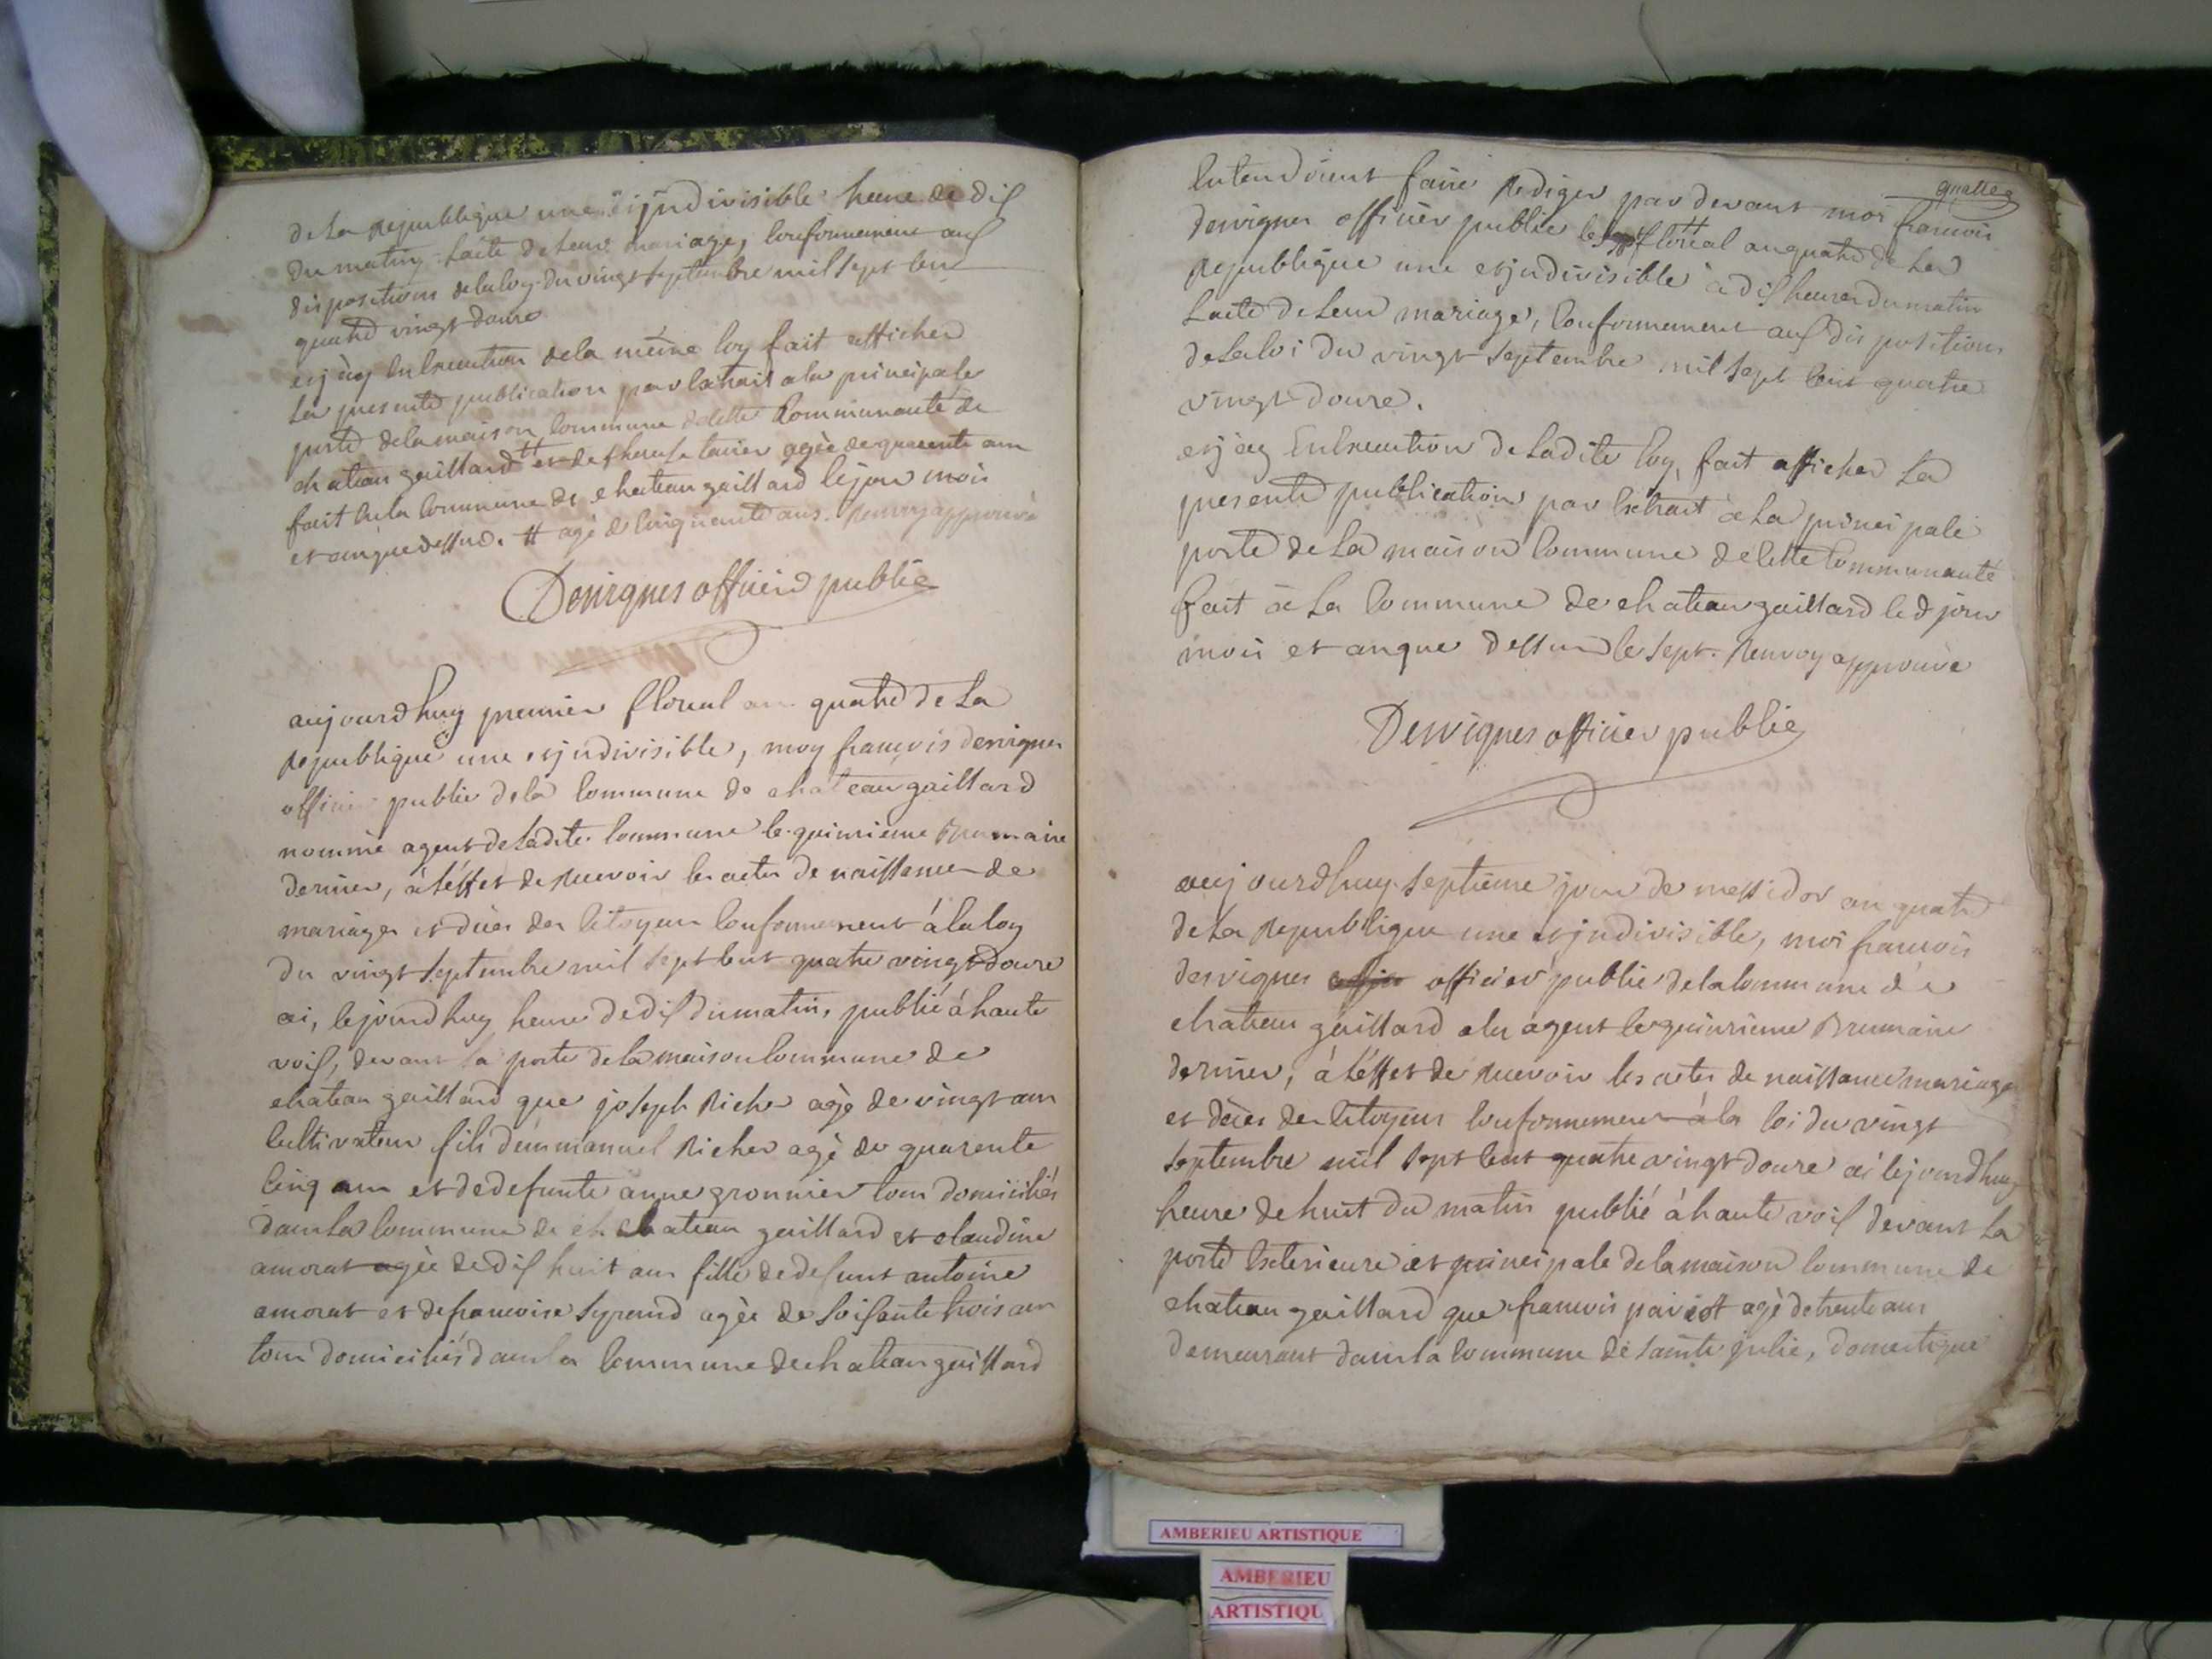 de la republique une et jndivisible heure de dix
du matin l'acte de leur mariage, conformement aux
dispositions de la loy du vingt septembre mil sept cent
quatre vingt douze
et j'ay en execution de la même loy fait afficher
la presente publication par extrait a la principale
porte de la maison commune de cette communauté de
chateau gaillard # et de therese tavier agée de quarente ans
fait en la commune de chateau gaillard le jour mois
et an que dessus. # agé de cinquente ans. Renvoy approuvé
Desvignes officier public
aujourdhuy premier floreal an quatre de la
republique une et jndivisible, moy françois desvignes
officier public de la commune de chateau gaillard
nommé agent de ladite commune le quinzieme Brumaire
dernier, à l'éffet de recevoir les actes de naissances de
mariages et décés des citoyens conformement à la loy
du vingt septembre mil sept cent quatre vingt douze
ai, cejourdhuy heure de dix du matin, publié à haute
voix, devant la porte de la maison commune de
chateau gaillard que joseph Richer agé de vingt ans
cultivateur fils d'emmanuel Richer agé de quarente
cinq ans et de defunte anne gronnier tous domiciliés
dans la commune de ch chateau gaillard et claudine
amorat agée de dix huit ans fille de defunt antoine
amorat et de francoise syraud agée de soixante trois ans
tous domiciliés dans la commune de chateau gaillard
quatre
entendoient faire Rediger par devant moi francois
desvignes officier public le # floréal an quatre de la
republique une et jndivisible à dix heures du matin
l'acte de leur mariage, conformement aux dispositions
de la loi du vingt septembre mil sept cent quatre
vingt douze.
et j'ay en execution de ladite loy, fait afficher la
presente publication par extrait à la principale
porte de la maison commune de cette communauté
fait à la commune de chateau gaillard led jour
mois et an que dessus # le sept. Renvoy approuvé
Desvignes officier public
aujourdhuy septieme jour de messidor an quatre
de la Republique une et jndivisible, moi francois
desvignes officier public de la commune de
chateau gaillard elu agent le quinzieme Brumaire
dernier, à l'éffet de recevoir les actes de naissance mariages
et décés des citoyens conformement à la loi du vingt
septembre mil sept cent quatre vingt douze ai cejourdhuy
heure de huit du matin publié à haute voix devant la
porte exterieure et principale de la maison commune de
chateau gaillard que francois pariot agé de trente ans
demeurant dans la commune de sainte julie, domestique
AMBERIEU ARTISTIQUE
AMBERIEU
ARTISTIQU